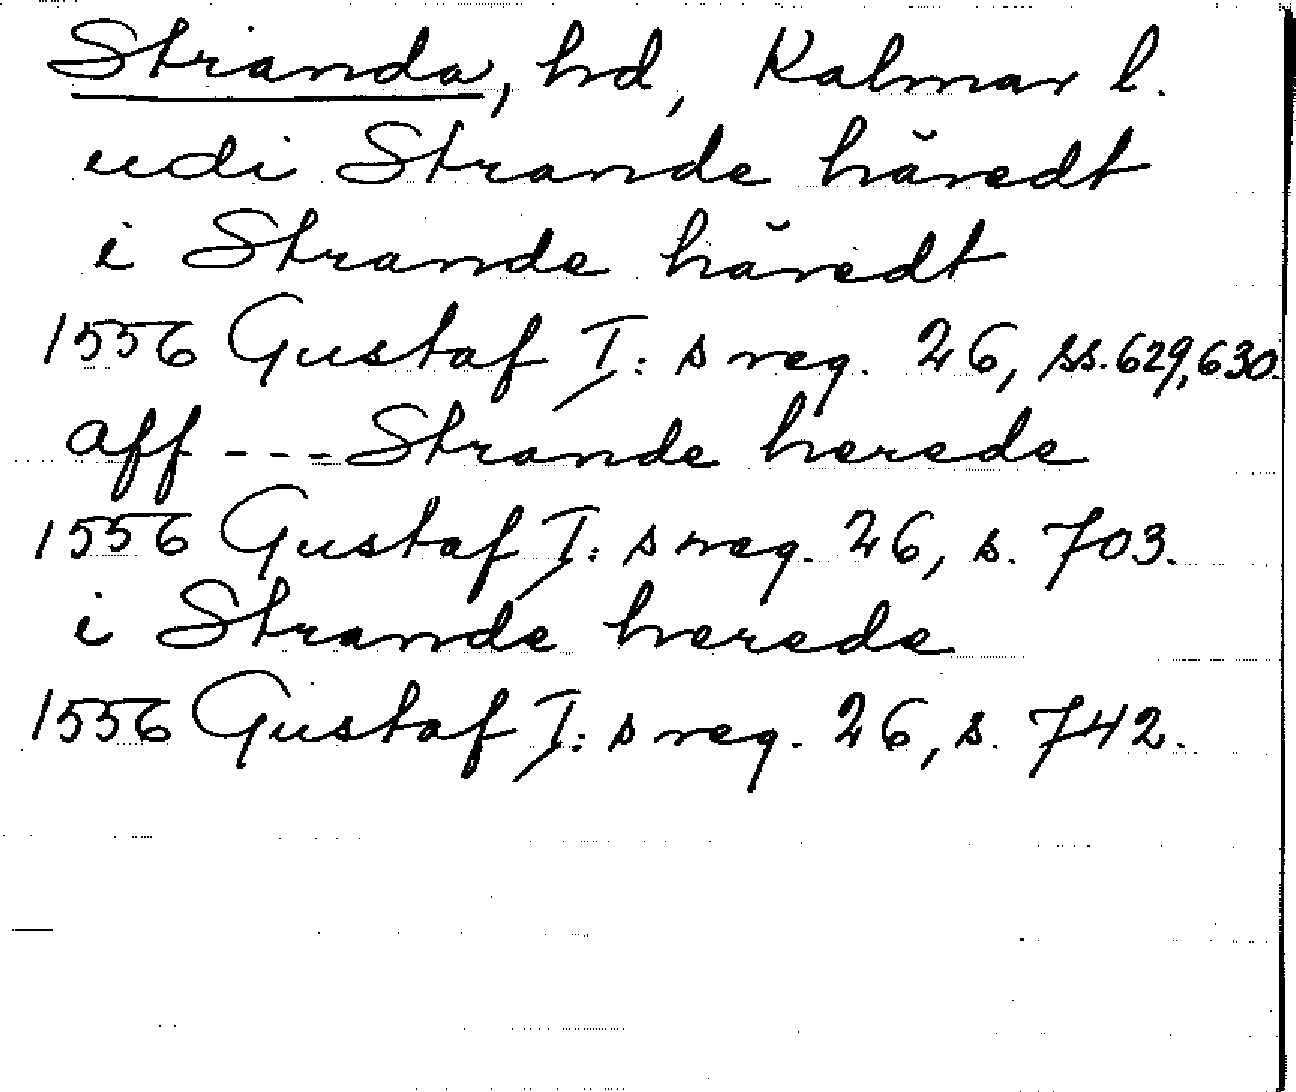 Stranda, hd, Kalmar l.
udi Strande häredt
i Strande häredt
1556 Gustaf I: s reg. 26, ss. 629, 630.
aff --- Strande herede
1556 Gustaf I: s reg. 26, s. 703.
i Strande herede
1556 Gustaf I: s reg. 26, s. 742.